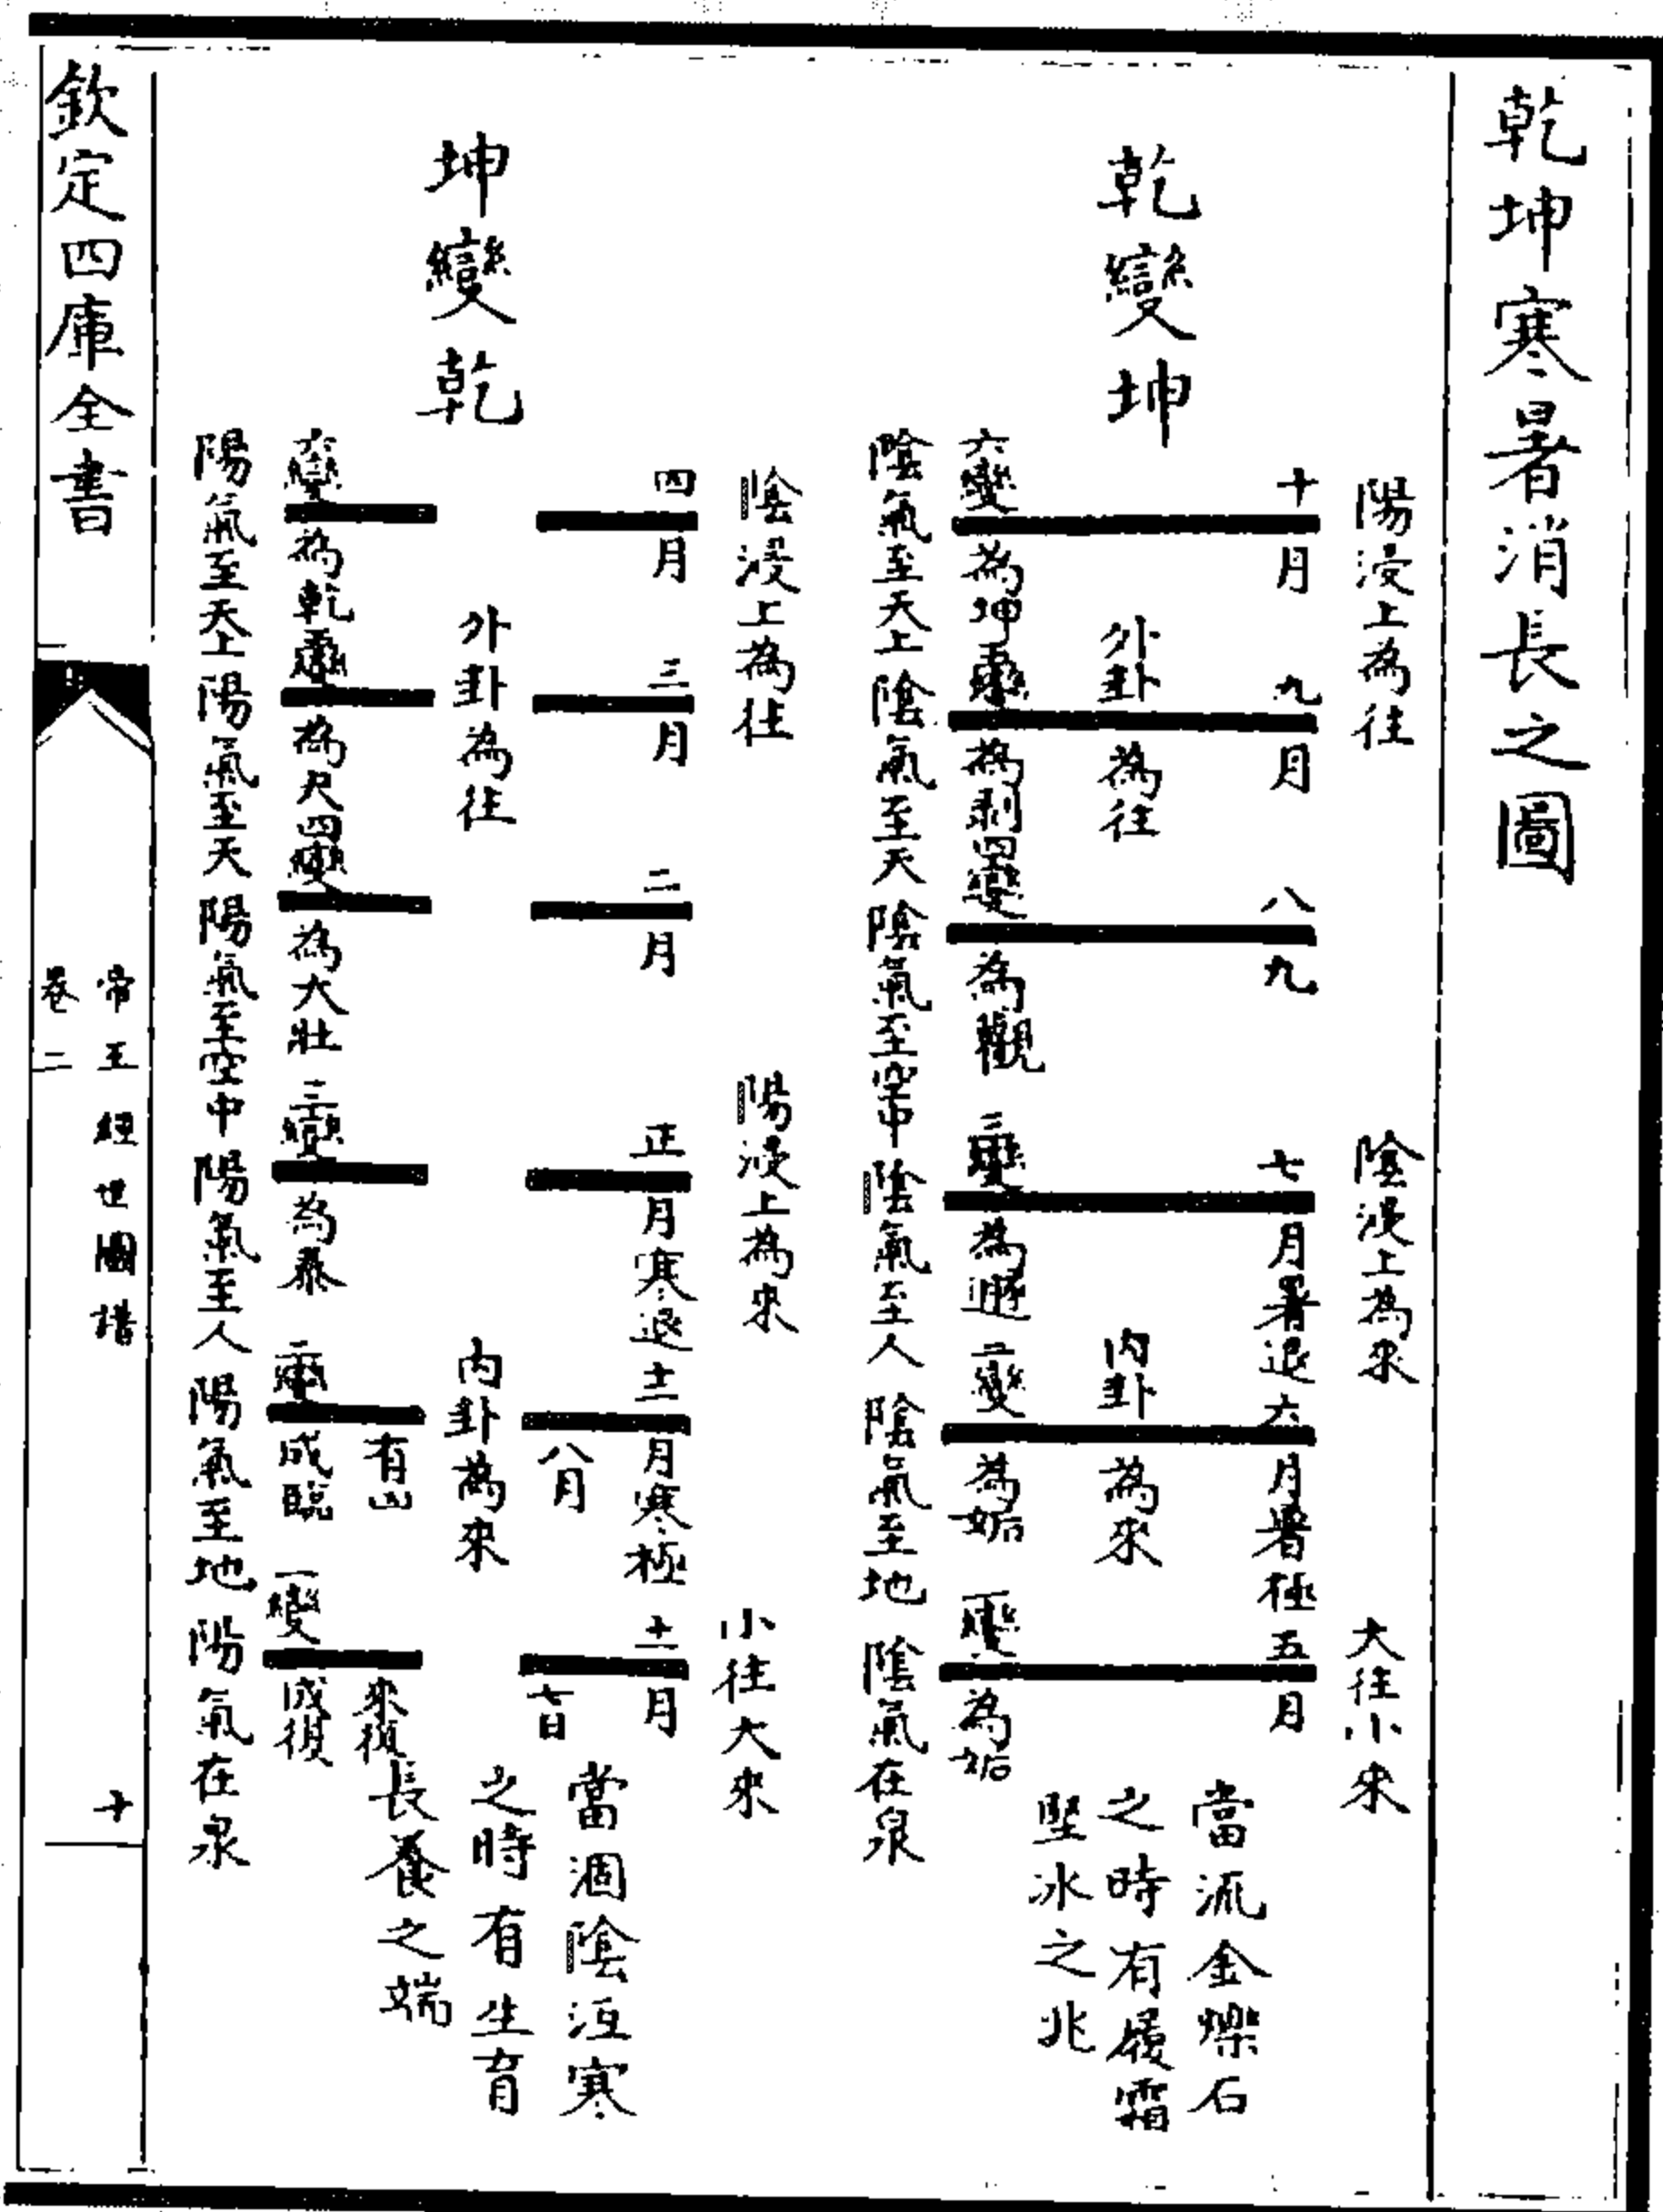 乾坤寒暑消長之圖
陽浸上為往
陰浸上為來
大往小來
乾變坤
十月
九月
八九
七月暑退
六月暑極
五月
外卦為往
內卦為來
當流金爍石
之時有履霜
堅冰之兆
六變為坤
五變為剥
四變為觀
三變為遯
二變為姤
一變為姤
陰氣至天上
陰氣至天
陰氣至空中
陰氣至人
陰氣至地
陰氣在泉
陰浸上為往
陽浸上為來
小往大來
坤變乾
四月
三月
二月
正月寒退
十二月寒極
十一月
八月
七日
外卦為往
內卦為來
當涸陰沍寒
之時有生育
長養之端
有凶
來復
六變為乾
五變為夬
四變為大壯
三變為泰
二變成臨
一變成復
陽氣至天上
陽氣至天
陽氣至空中
陽氣至人
陽氣至地
陽氣在泉
欽定四庫全書
帝王經世圖譜
卷二
十